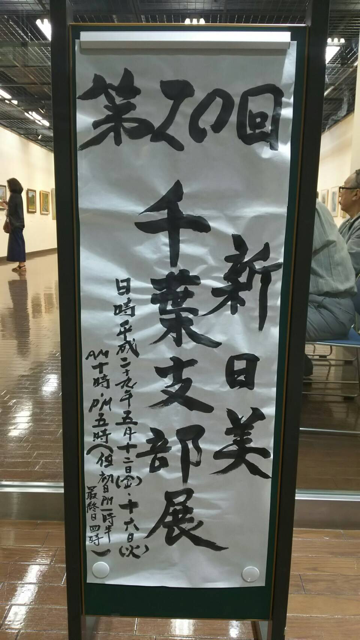 第20回
新日美
千葉支部展
日時 平成二十九年五月十二日(金)・十六日(火)
AM十時 PM五時(但 初日PM一時半
最終日四時)